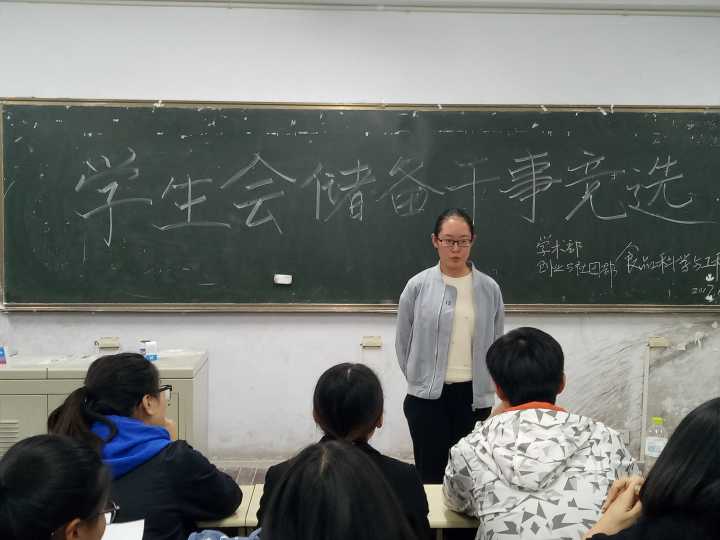 学生会储备干事竞选
学术部
创业与社团部 食品科学与工程
2017.